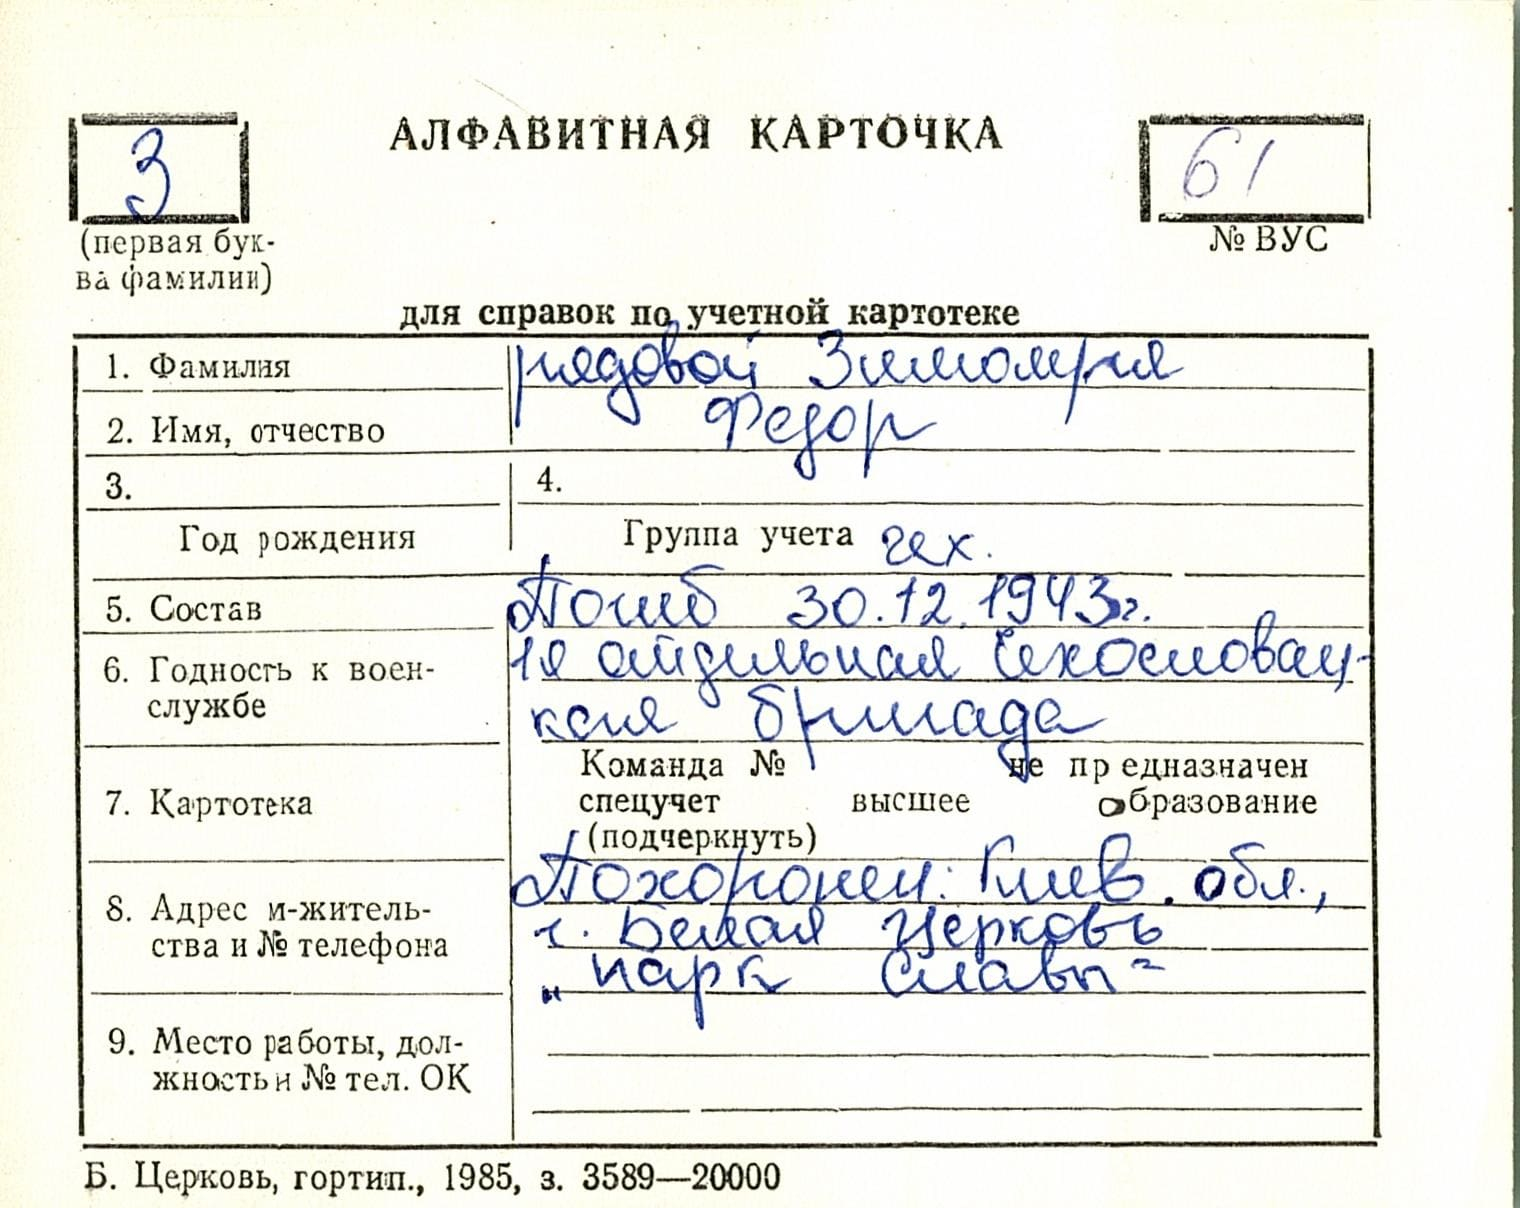 З
АЛФАВИТНАЯ КАРТОЧКА
61
(первая бук-
ва фамилии)
№ ВУС
для справок по учетной картотеке
1. Фамилия
рядовой Зимомря
2. Имя, отчество
Федор
3.
4.
Год рождения
Группа учета чех.
5. Состав
Погиб 30.12.1943г.
6. Годность к воен-
службе
1я отдельная Чехословац-
кая бригада
7. Картотека
Команда № не предназначен
спецучет высшее образование
(подчеркнуть)
8. Адрес м-житель-
ства и № телефона
Похоронен: Киев. обл.,
г. Белая Церковь
„парк Славы"
9. Место работы, дол-
жность и № тел. ОК
Б. Церковь, гортип., 1985, з. 3589—20000